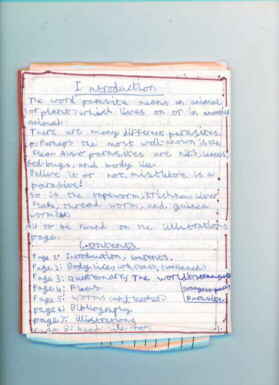 Introduction
The word parasite means an animal
or plant, which lives on or in another
animal.
There are many different parasites,
Perhaps the most well-known is the
flea. Also parasites are nits,
bed-bugs, and body lice.
Belive it or not, mistletoe is a
parasite!
So is the tapeworm, liver
fluke, thread worm, and guinea
worm
All to be found on the illustrations
page.
Contents
Page 1: Introduction, contents.
Page 2: Body lice,
Page 3: The world's
dangerous
Page 4: Fleas
parasites
Page 5: Worms and
page 6: Bibliography
page 7: Illustrations